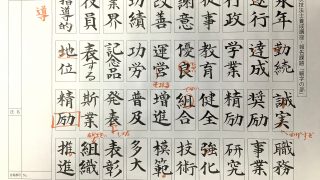 勤続 誠実 職務
遂行 達成 奨励 事業
行政 学業 健全 研究
教育 優良 組合 強化
改善 運営 増進 技術 模範
功績 功労 普及 多大
業界 記念品 発表 表彰
役員 表する 斯業 組織
指導的 地位 精励 推進
導